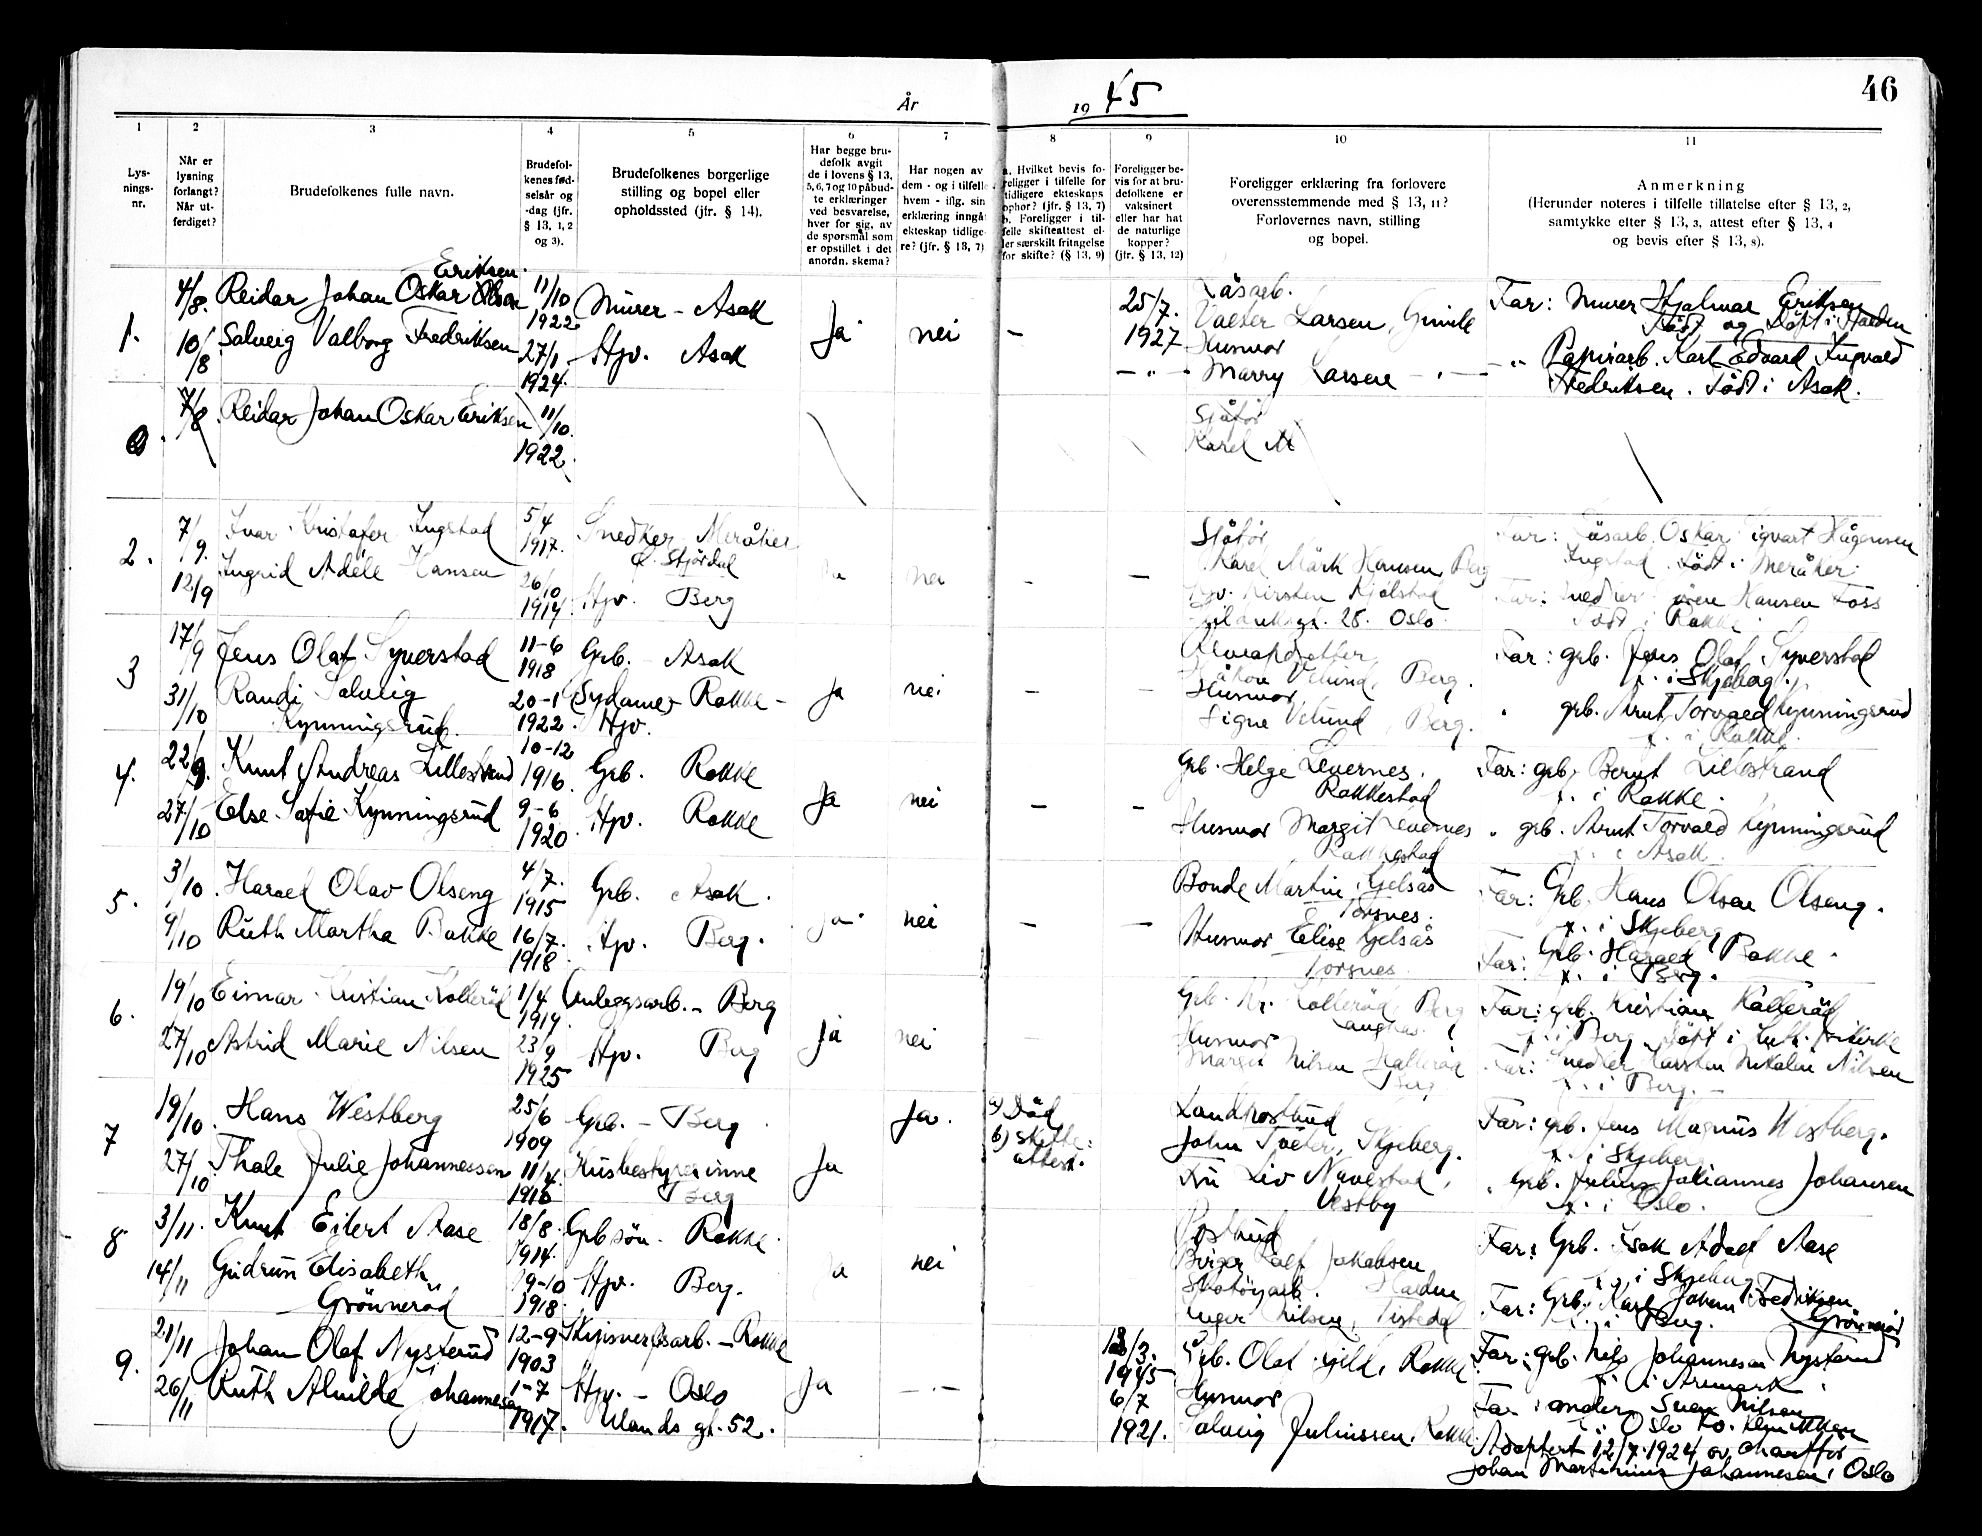 År 1945
46
1
2
3
4
5
6
7
8
9
10
11
Lys-
nings-
nr.
Når er
lysning
forlangt?
Når ut-
ferdiget?
Brudefolkenes fulle navn.
Brudefol-
kenes fød-
selsår og
-dag (jfr.
§ 13, 1, 2
og 3).
Brudefolkenes borgerlige
stilling og bopel eller
opholdssted (jfr. § 14).
Har begge bru-
defolk avgit
de i lovens § 13,
5, 6, 7 og 10 påbud-
te erklæringer
ved besvarelse,
hver for sig, av
de spørsmål som
er opstillet i det
anordn. skema?
Har nogen av
dem - og i tilfelle
hvem - iflg. sin
erklæring inngåt
ekteskap tidlige-
re? (jfr. § 13, 7)
a. Hvilket bevis fo-
religger i tilfelle for
tidligere ekteskaps
ophør? (jfr. § 13, 7)
b. Foreligger i til-
felle skifteattest el-
ler særskilt fritagelse
for skifte? (§ 13, 9)
Foreligger be-
vis for at bru-
defolkene er
vaksinert
eller har hat
de naturlige
kopper?
(jfr. § 13, 12)
Foreligger erklæring fra forlovere
overensstemmende med § 13, 11?
Forlovernes navn, stilling
og bopel.
Anmerkning
(Herunder noteres i tilfelle tillatelse efter § 13, 2,
samtykke efter § 13, 3, attest efter § 13, 4
og bevis efter § 13, 8).
1.
4/8.
10/8
Eriksen.
Reidar Johan Oskar Olsen
Solveig Valborg Fredriksen
11/10
1922
27/1
1924.
Murer - Asak
Hjv. Asak
Ja
nei
-
25/7.
1927
- " -
Valter Larsen, Gimle
Husmor
Marry Larsen - " -
Far: Murer Hjalmar Eriksen
Født og Døpt i Halden
" Papirarb. Karl Edvard Ingvald
Fredriksen. Født i Asak.
7/8
Reidar Johan Oskar Eriksen
11/10.
1922.
Sjåfør
Karel M
2.
7/9.
12/9
Ivar Kristofer Ingstad
Ingrid Adele Hansen
5/4
1917.
26/10
1914.
Snedker Meråker
Stjørdal
Hjv. Berg
nei
-
-
Sjåfør
Karel Mårk Hansen, Berg
Hjv. Kirsten Kjølstad
28. Oslo.
Far: Oskar Sigvart Hågensen
Ingstad. Født i Meråker.
Far: Snedker Hansen Foss
Født i Rokke
3
17/9
31/10
Jens Olaf Syverstad
Randi Solveig
Kynningsrud.
11-6
1918
20-1
1922.
Grb. - Asak
(Sydame) Rokke -
Hjv.
Ja
nei
-
-
Håkon Velund, Berg.
Husmor
Signe Velund, Berg.
Far: grb. Jens Olaf Syverstad
f. i Skjeberg.
" grb. Arnt Torvald Kynningsrud
f. i Rokke.
4.
22/9.
27/10
Knut Andreas Lillestrand
Else Sofie Kynningsrud
10-12
1916.
9-6
1920.
Grb. Rokke
Hjv. Rokke
Ja
nei
-
-
Grb. Helge Levernes.
Rakkestad
Husmor Margit Levernes
Rakkestad
Far: grb. Bernt Lillestrand
f. i Rokke.
" grb. Arnt Torvald Kynningsrud
f. i Asak.
5.
3/10.
9/10
Harald Olav Olseng
Ruth Martha Bakke
4/7.
1915
16/7.
1918.
Grb. Asak.
Hjv. Berg.
Ja.
nei
-
-
Bonde Martin Gjelsås
Torsnes.
Husmor Elise Gjelsås
Torsnes.
Far: Grb. Hans Olsen Olseng.
f. i Skjeberg
Far: Grb. Harald Bakke.
f. i Berg.
6.
19/10
27/10
Einar Kristian Kollerød
Astrid Marie Nilsen
1/4
1919.
23/9
1925
Anleggsarb. - Berg
Hjv. Berg
Ja
nei
-
Grb. Kr. Kollerød, Berg
Husmor
Margit Nilsen Kallerød
Berg
Far: grb. Kristian Kallerød
f. i Berg. Døpt i Luth. frikirke
Far: Snedker Karsten Nikolai Nilsen
f. i Berg. -
7
19/10.
27/10
Hans Westberg
Thale Julie Johannessen
25/6
1909
11/4
1916
Grb. - Berg
Husbestyrerinne
Berg
Ja
Ja.
a) Død
b) Skifte-
attest.
Landpostbud
John Tveter, Skjeberg.
Fru Liv Navestad,
Vestby
Far: grb. Jens Magnus Westberg.
f. i Skjeberg
" grb. Julius Johannes Johansen
f. i Oslo.
8
3/11.
14/11
Knut Eilert Aase
Gudrun Elisabeth
Grønnerød
18/8.
1914.
19-10
1918.
Grb.søn - Rokke
Hjv. Berg.
Ja
nei
Postbud
Birger Leif Jakobsen
Skotøyarb. Halden
Inger Nilsen, Tistedal
Far: Grb. Isak Adolf Aase
f. i Skjeberg
Far: Grb. Karl Johan Fredriksen
Grønnerød
f. i Berg.
9.
21/11
26/11
Johan Olaf Nysterud
Ruth Alvilde Johannesen
12-9
1903
1-7
1917.
- Rokke
Hjv. - Oslo
Ulands gt. 52.
Ja
- . -
13/3.
1945
6/7
1921.
Grb. Olaf Rokke
Husmor
Solveig Juliussen. Rokke.
Far: grb. Nils Johannesen Nysterud
f. i Aremark.
Far: Svens Nilsen
f. i Oslo
Adoptert 12/7.1924 av chauffør
Johan Martinius Johannesen, Oslo